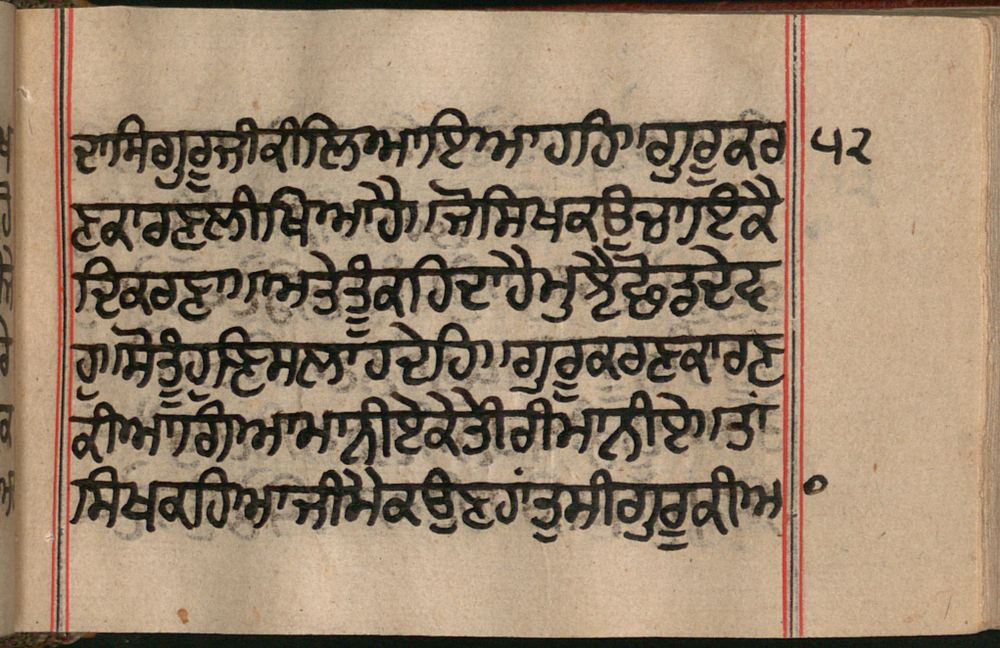 ਦਾਸਿਗੁਰੂਜੀਕੀਲਿਆਇਆਹਹਿ।ਗੁਰੂਕਰ ੫੨
ਣਕਾਰਣਲੀਖਿਆਹੈ।ਜੋਸਿਖਕਉਚਾਇਕੈ
ਦਿਕਰਣਾ।ਅਤੇਤੂੰਕਹਿਦਾਹੈਮੁਝੈਛੋਡਦੇਵ
ਹੁ।ਸੋਤੂੰਹੁਣਿਸਲਾਹਦੇਹਿ।ਗੁਰੂਕਰਣਕਾਰਣ
ਕੀਆਗਿਆਮਾਨੀਏਕੈਤੇਰੀਮਾਨੀਏ।ਤਾਂ
ਸਿਖਕਹਿਆਜੀਮੈਕਉਣਹਾਂਤੁਸੀਗੁਰੂਕੀਅ